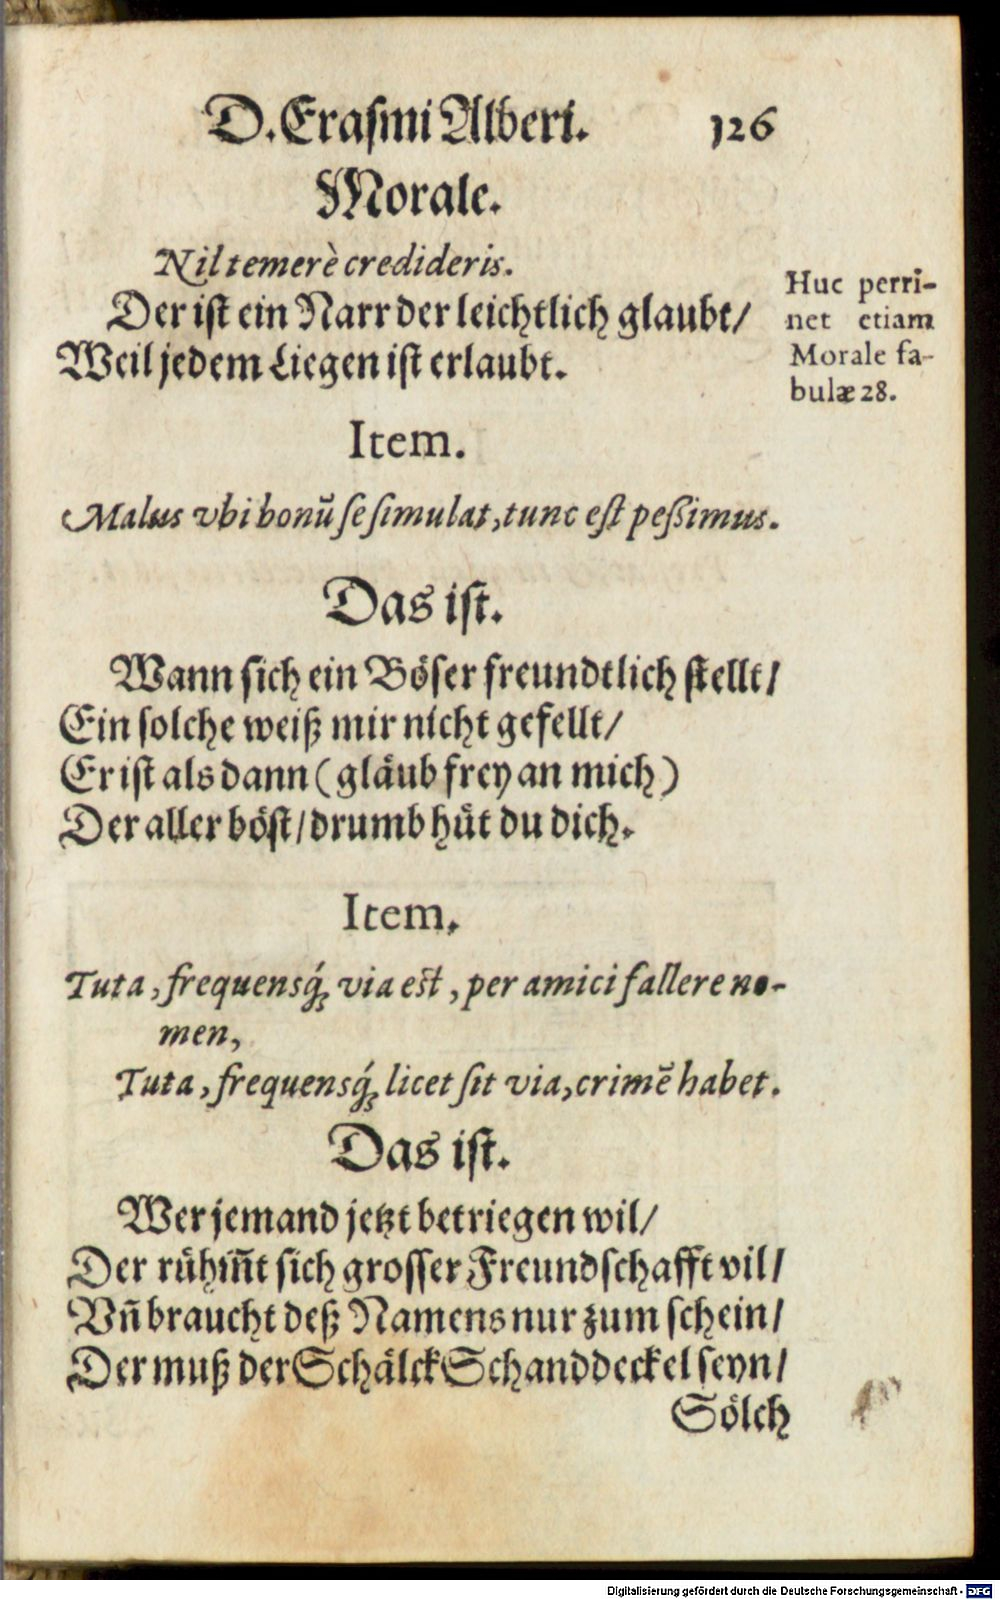 D. Erasmi Alberi. 126
Morale.
Nil temerè credideris.
Der ist ein Narr der leichtlich glaubt/
Weil jedem Liegen ist erlaubt.
Huc perti-
net etiam
Morale fa-
bulæ 28.
Item.
Malus vbi bonũ se simulat, tunc est peßimus.
Das ist.
Wann sich ein Böser freundtlich stellt/
Ein solche weiß mir nicht gefellt/
Er ist als dann (gläub frey an mich)
Der aller böst/ drumb hüt du dich.
Item.
Tuta, frequensq́; via est, per amici fallere no-
men,
Tuta, frequensq́; licet sit via, crimẽ habet.
Das ist.
Wer jemand jetzt betriegen wil/
Der rühm̃t sich grosser Freundschafft vil/
Vñ braucht deß Namens nur zum schein/
Der muß der Schälck Schanddeckel seyn/
Sölch
Digitalisierung gefördert durch die Deutsche Forschungsgemeinschaft - DFG